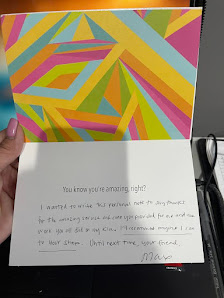 You know you're amazing, right?
I wanted to write this personal note to say thanks
for the amazing service and care you provided for me and the
work you all did on my claim. I'll recommend maybe I can
to your team. Until next time, your friend,
Max